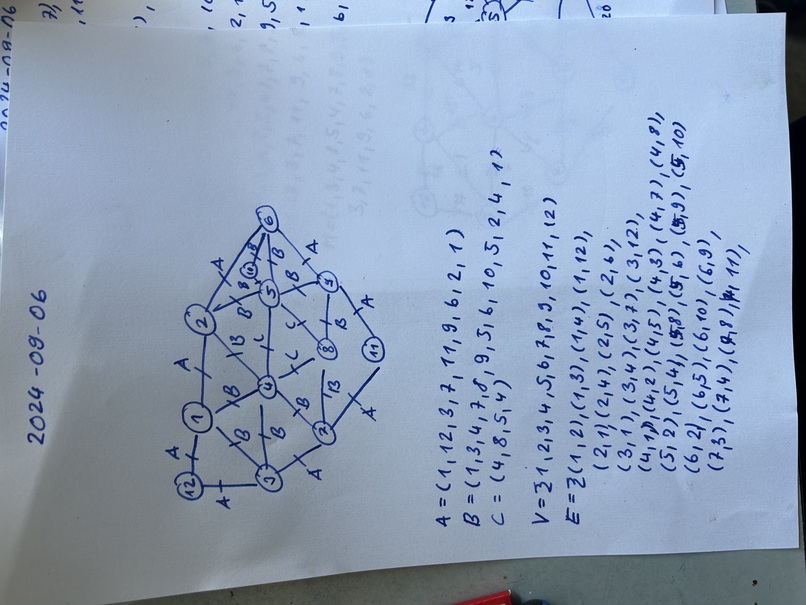 2024-09-06
A = (1, 12, 3, 7, 11, 9, 6, 2, 1)
B = (1, 3, 4, 7, 8, 9, 5, 6, 10, 5, 2, 4, 1)
C = (4, 8, 5, 4)
V = {1, 2, 3, 4, 5, 6, 7, 8, 9, 10, 11, 12}
E = {(1, 2), (1, 3), (1, 4), (1, 12),
(2, 1), (2, 4), (2, 5), (2, 6),
(3, 1), (3, 4), (3, 7), (3, 12),
(4, 1), (4, 2), (4, 5), (4, 3), (4, 7), (4, 8),
(5, 2), (5, 4), (5, 8), (5, 6), (5, 9), (5, 10)
(6, 2), (6, 5), (6, 10), (6, 9)
(7, 3), (7, 4), (7, 8), (7, 11),
12
A
1
A
2
A
6
A
3
B
B
4
B
B
B
5
B
10
B
B
B
C
C
C
9
A
7
A
B
8
B
11
A